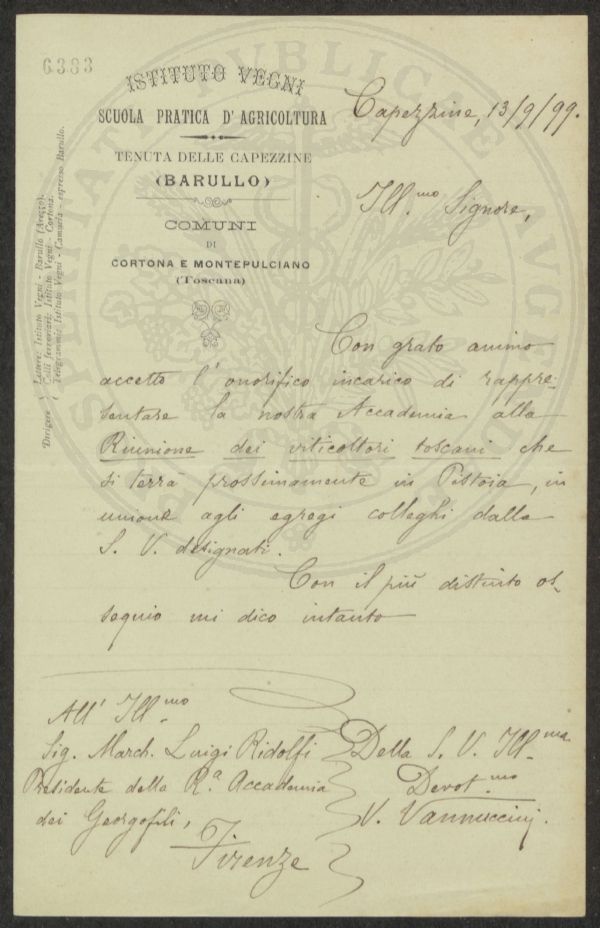 6383
ISTITUTO VEGNI
SCUOLA PRATICA D'AGRICOLTURA
TENUTA DELLE CAPEZZINE
(BARULLO)
COMUNI
DI
CORTONA E MONTEPULCIANO
(Toscana)
Dirigere
Lettere: Istituto Vegni - Barullo (Arezzo).
Colli ferroviari: Istituto Vegni - Cortona.
Telegrammi: Istituto Vegni - Camucia - espresso Barullo.
Capezzine, 13/9/99.
Ill.mo Signore,
Con grato animo
accetto l'onorifico incarico di rappre-
sentare la nostra Accademia alla
Riunione dei viticoltori toscani che
si terrà prossimamente in Pistoia, in
unione agli egregi colleghi dalla
S. V. designati.
Con il più distinto os-
sequio mi dico intanto
Della S. V. Ill.ma
Devot.mo
V. Vannuccini.
All' Ill.mo
Sig. March. Luigi Ridolfi
Presidente della R.a Accademia
dei Georgofili,
Firenze
PROSPERITATI PUBLICAE AUGENDAE